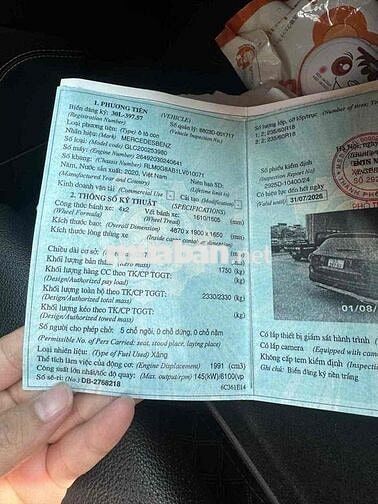 1. PHƯƠNG TIỆN (VEHICLE)
Biển đăng ký: 30L-397.57 Số quản lý: 6603D-051717
(Registration Number) (Vehicle Inspection No.)
Loại phương tiện: (Type) ô tô con
Nhãn hiệu: (Mark) MERCEDESBENZ
Số loại: (Model code) GLC200253980
Số máy: (Engine Number) 26492030240641
Số khung: (Chassis Number) RLMG0
Năm, Nước sản xuất: 2020, Việt Nam Niên hạn SD:
(Manufactured Year and Country) (Lifetime limit to)
Kinh doanh vận tải (Commercial Use) Cải tạo (Modification)
2. THÔNG SỐ KỸ THUẬT (SPECIFICATIONS)
Công thức bánh xe: 4x2 Vết bánh xe: 1610/1605 (mm)
(Wheel Formula) (Wheel Tread)
Kích thước bao: (Overall Dimension) 4670 x 1900 x 1650 (mm)
Kích thước lòng thùng xe (Inside cargo container dimension) (mm)
muaban.net
Chiều dài cơ sở: (mm)
Khối lượng bản thân: 1750 (kg)
Khối lượng hàng CC theo TK/CP TGGT: (kg)
(Design/Authorized pay load)
Khối lượng toàn bộ theo TK/CP TGGT: 2330/2330 (kg)
(Design/Authorized total mass)
Khối lượng kéo theo TK/CP TGGT: (kg)
(Design/Authorized towed mass)
Số người cho phép chở: 5 chỗ ngồi, 0 chỗ đứng, 0 chỗ nằm
(Permissible No. of Pers Carried: seat, stood place, laying place)
Loại nhiên liệu: (Type of Fuel Used) Xăng
Thể tích làm việc của động cơ: (Engine Displacement) 1991 (cm3)
Công suất lớn nhất/tốc độ quay: (Max. output/rpm) 145(kW)/6100(vp
Số sê-ri: (No.) DB-2768218
Số lượng lốp, cỡ lốp/trục (Number of
1: 2; 235/60R18
2: 2; 235/60R18
Số phiếu kiểm định
(Inspection Report No)
2925D-10400/24
Có hiệu lực đến hết ngày
(Valid until) 31/07/2026
Hà Nội,
01/08/
Có lắp thiết bị giám sát hành trình
Có lắp camera (Equipped with camera
Không cấp tem kiểm định (Inspection
Ghi chú: Biển đăng ký nền trắng